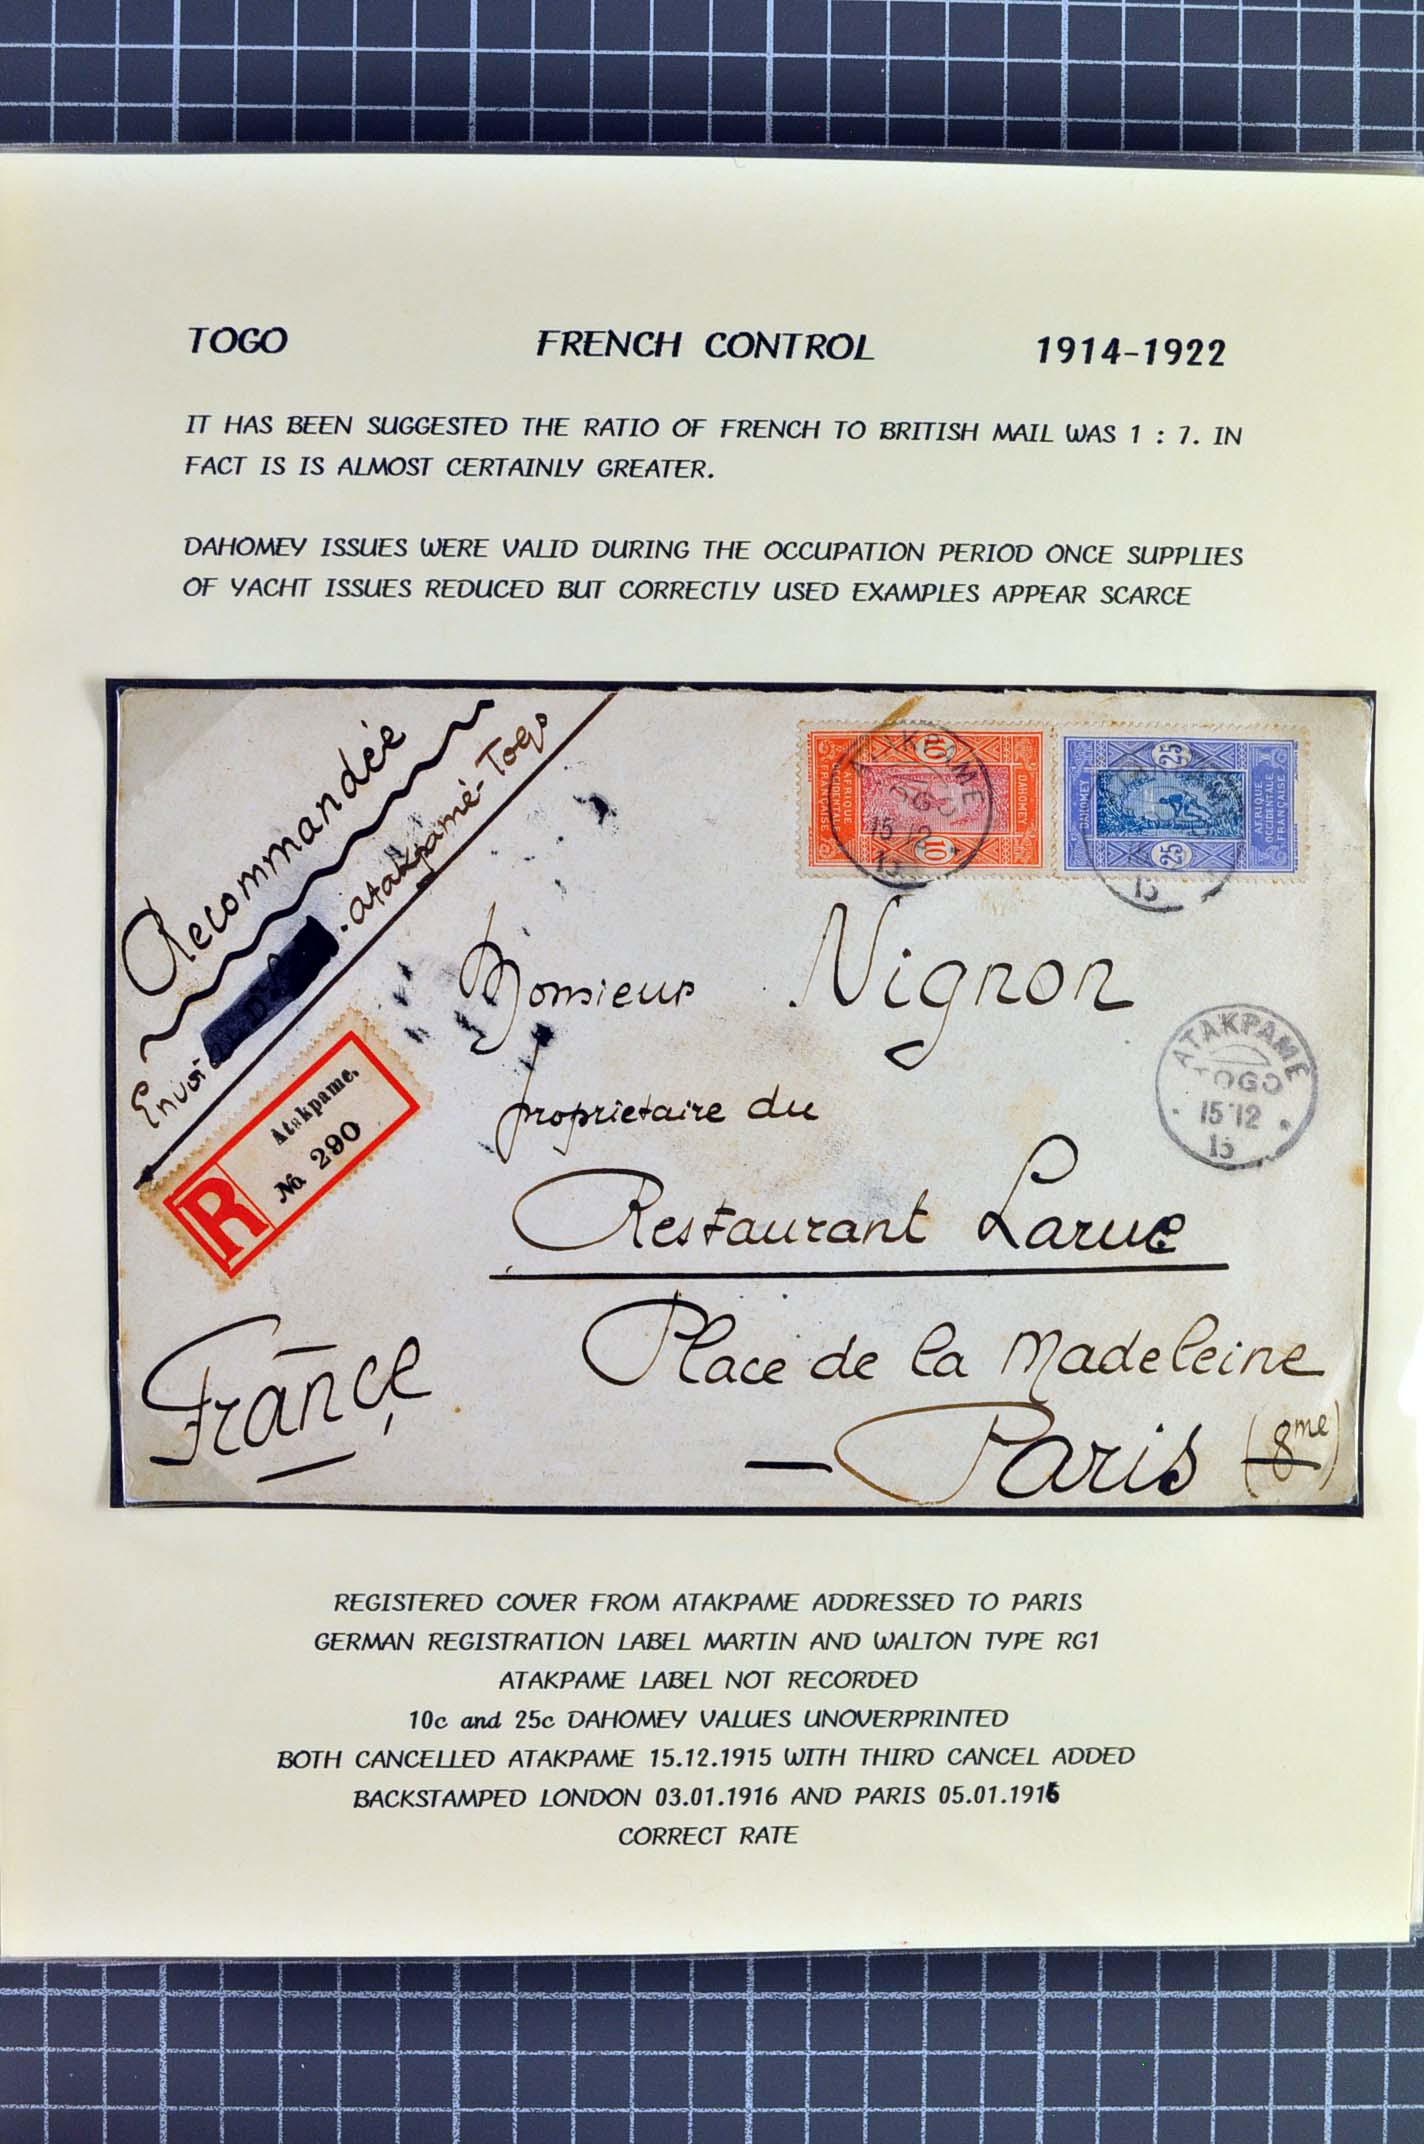 TOGO FRENCH CONTROL 1914-1922
IT HAS BEEN SUGGESTED THE RATIO OF FRENCH TO BRITISH MAIL WAS 1 : 7. IN
FACT IS IS ALMOST CERTAINLY GREATER.
DAHOMEY ISSUES WERE VALID DURING THE OCCUPATION PERIOD ONCE SUPPLIES
OF YACHT ISSUES REDUCED BUT CORRECTLY USED EXAMPLES APPEAR SCARCE
Recommandée
Envoi . Atakpamé-Togo
10
DAHOMEY
AFRIQUE
OCCIDENTALE
FRANÇAISE
10
25
DAHOMEY
AFRIQUE
OCCIDENTALE
FRANÇAISE
25
ATAKPAME
TOGO
15 12
15
15
Monsieur Nignon
ATAKPAME
TOGO
15 12
15
proprietaire du
R
Atakpame.
No. 290
Restaurant Larue
France
Place de la Madeleine
Paris (8me)
REGISTERED COVER FROM ATAKPAME ADDRESSED TO PARIS
GERMAN REGISTRATION LABEL MARTIN AND WALTON TYPE RG1
ATAKPAME LABEL NOT RECORDED
10c and 25c DAHOMEY VALUES UNOVERPRINTED
BOTH CANCELLED ATAKPAME 15.12.1915 WITH THIRD CANCEL ADDED
BACKSTAMPED LONDON 03.01.1916 AND PARIS 05.01.1916
CORRECT RATE